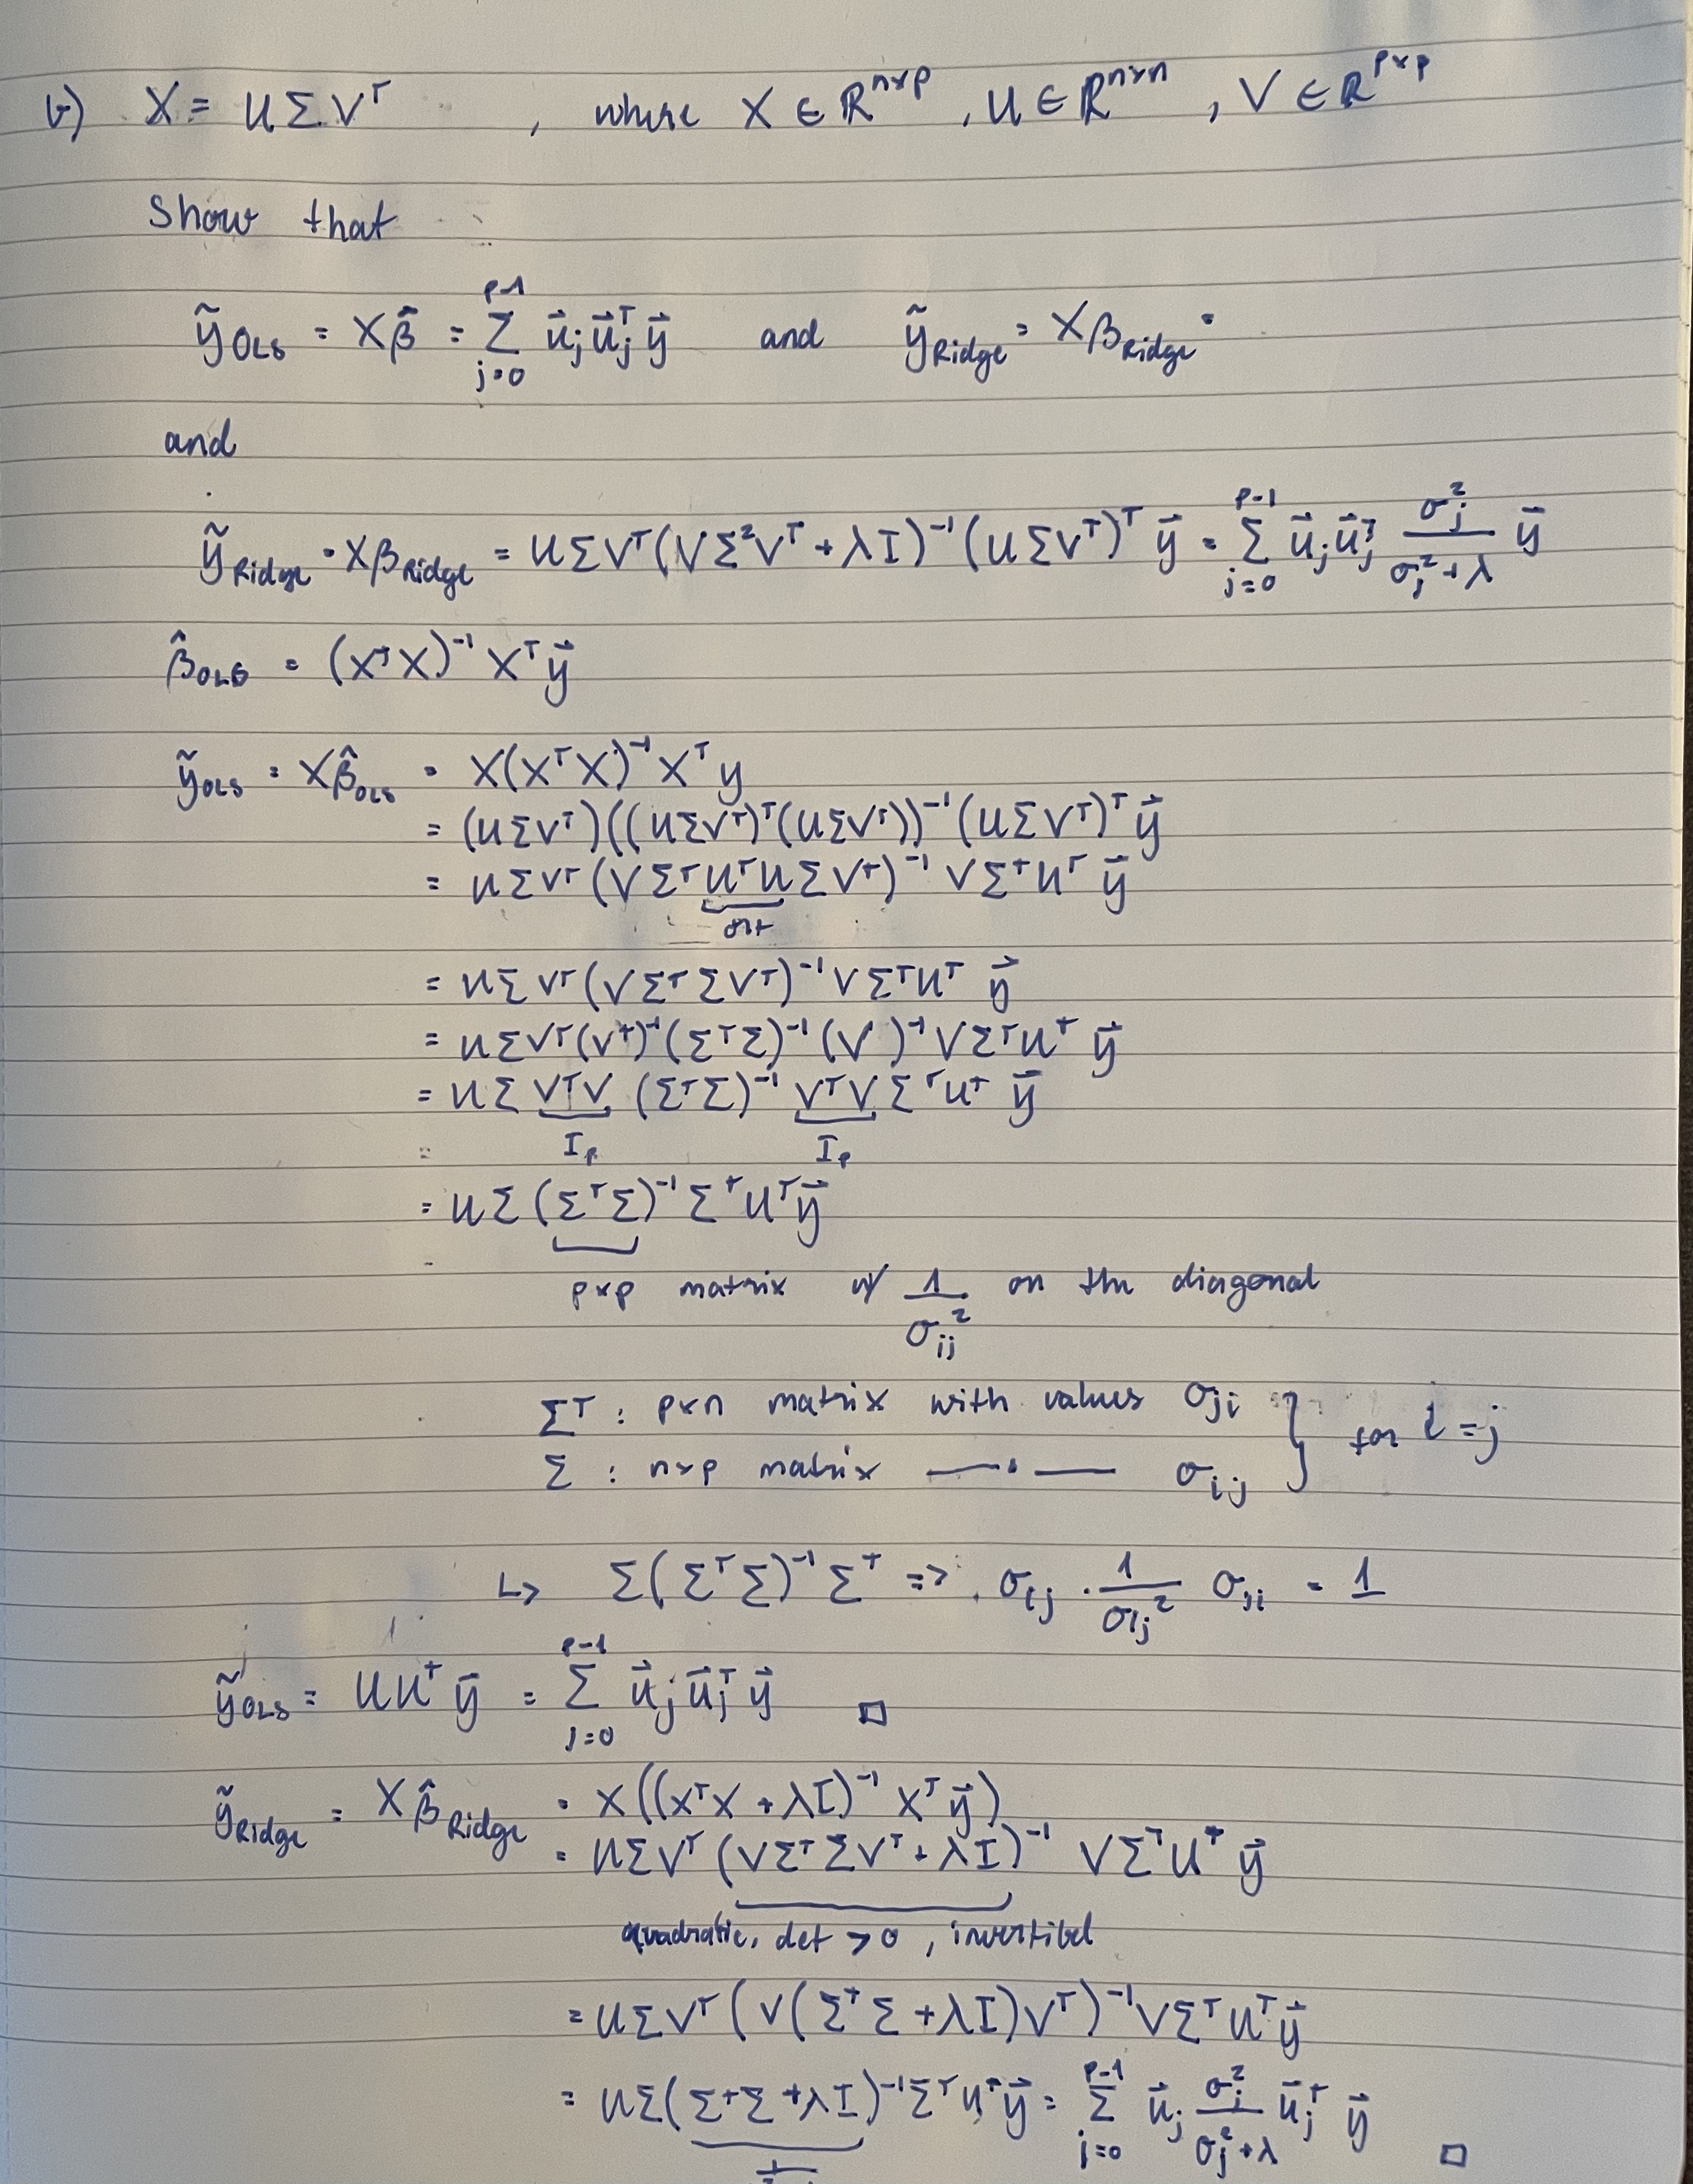 b) X = U Σ Vᵀ , where X ∈ ℝⁿˣᵖ , U ∈ ℝⁿˣⁿ , V ∈ ℝᵖˣᵖ
Show that
ỹ_OLS = Xβ̂ = Σ_{j=0}^{p-1} u⃗_j u⃗_jᵀ y⃗ and ỹ_Ridge = Xβ_Ridge
and
ỹ_Ridge = Xβ_Ridge = UΣVᵀ(VΣ²Vᵀ + λI)⁻¹(UΣVᵀ)ᵀ y⃗ = Σ_{j=0}^{p-1} u⃗_j u⃗_jᵀ σ_j²/(σ_j² + λ) y⃗
β̂_OLS = (XᵀX)⁻¹ Xᵀ y⃗
ỹ_OLS = Xβ̂_OLS = X(XᵀX)⁻¹Xᵀ y
= (UΣVᵀ)((UΣVᵀ)ᵀ(UΣVᵀ))⁻¹(UΣVᵀ)ᵀ y⃗
= UΣVᵀ(VΣᵀUᵀUΣVᵀ)⁻¹ VΣᵀUᵀ y⃗
= UΣVᵀ(VΣᵀΣVᵀ)⁻¹VΣᵀUᵀ y⃗
= UΣVᵀ(Vᵀ)⁻¹(ΣᵀΣ)⁻¹(V)⁻¹VΣᵀUᵀ y⃗
= UΣ VᵀV (ΣᵀΣ)⁻¹ VᵀV ΣᵀUᵀ y⃗
= I_p I_p
= UΣ(ΣᵀΣ)⁻¹ΣᵀUᵀy⃗
p×p matrix w/ 1/σ_ij² on the diagonal
Σᵀ : p×n matrix with values σ_ji } for i = j
Σ : n×p matrix —"— σ_ij
↳ Σ(ΣᵀΣ)⁻¹Σᵀ => σ_ij · 1/σ_ij² σ_ji = 1
ỹ_OLS = UUᵀy⃗ = Σ_{j=0}^{p-1} u⃗_j u⃗_jᵀ y⃗ □
ỹ_Ridge = Xβ̂_Ridge = X((XᵀX + λI)⁻¹Xᵀy⃗)
= UΣVᵀ(VΣᵀΣVᵀ + λI)⁻¹ VΣᵀUᵀ y⃗
quadratic, det > 0, invertibel
= UΣVᵀ(V(ΣᵀΣ + λI)Vᵀ)⁻¹VΣᵀUᵀy⃗
= UΣ(ΣᵀΣ + λI)⁻¹ΣᵀUᵀy⃗ = Σ_{j=0}^{p-1} u⃗_j σ_j²/(σ_j² + λ) u⃗_jᵀ y⃗ □